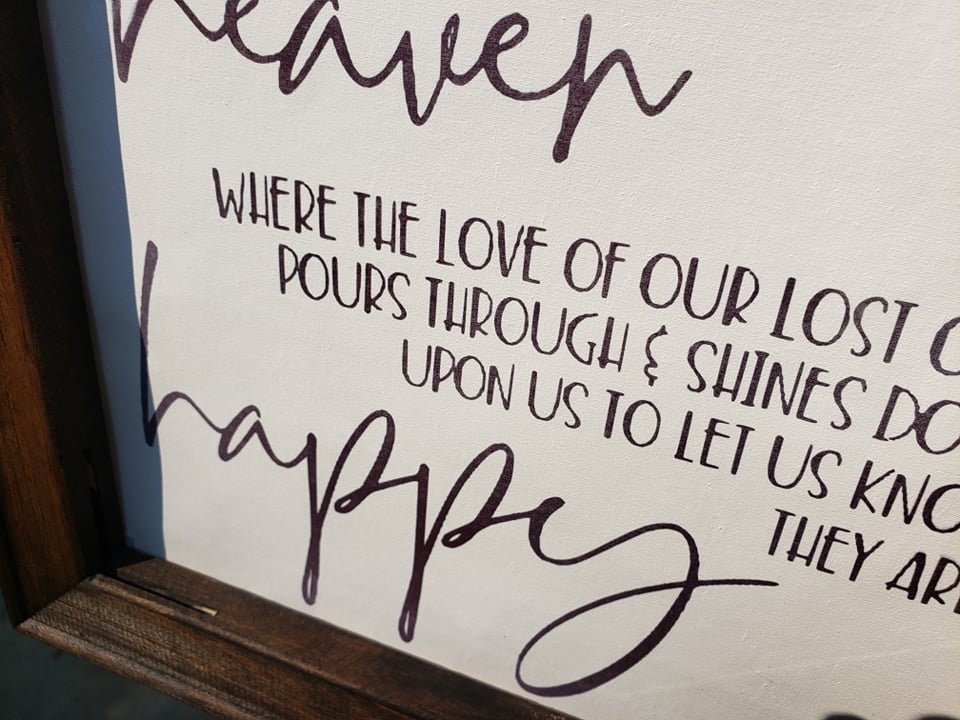 heaven
WHERE THE LOVE OF OUR LOST
POURS THROUGH & SHINES
UPON US TO LET US
THEY
happy